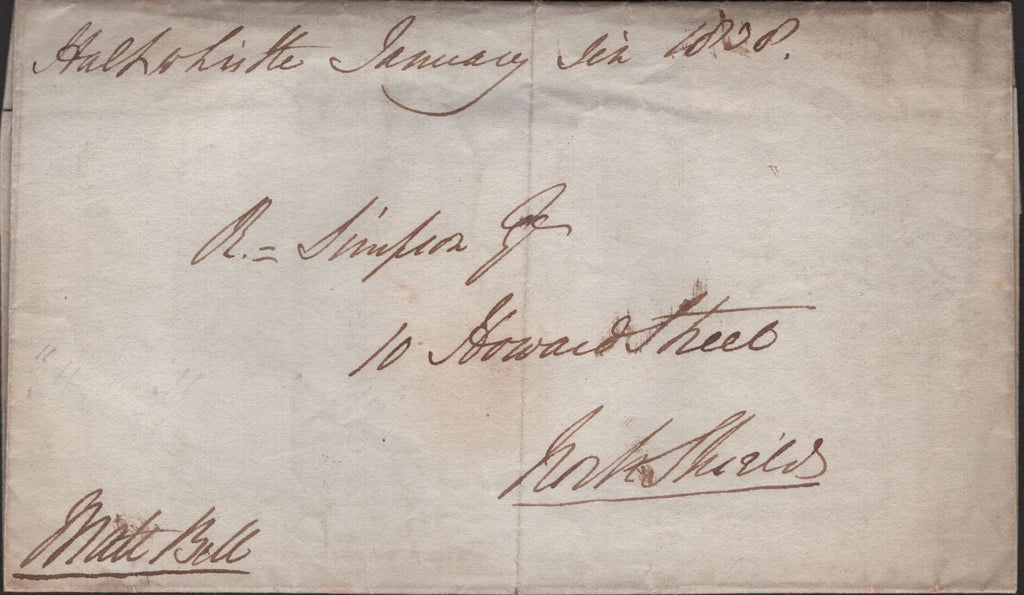 Haltwhistle January Six 1838.
R.= Simpson
10 Howard Street
North Shields
Matt Bell